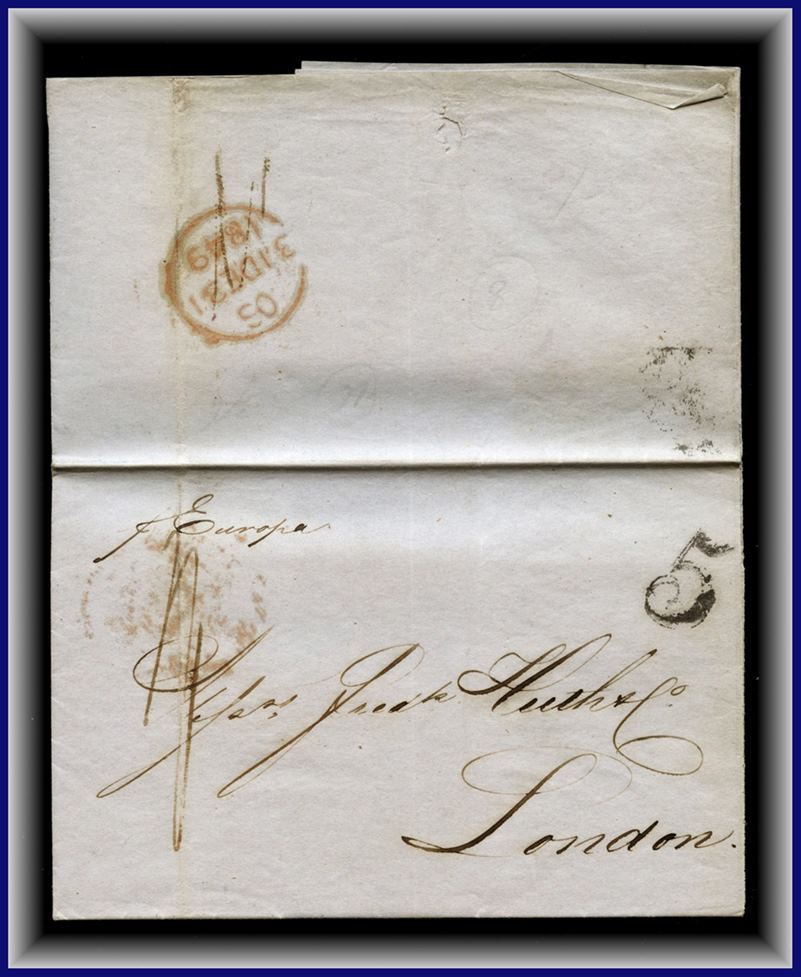 1849
p Europa
5
Messrs Fredk Huth & Co.
London.